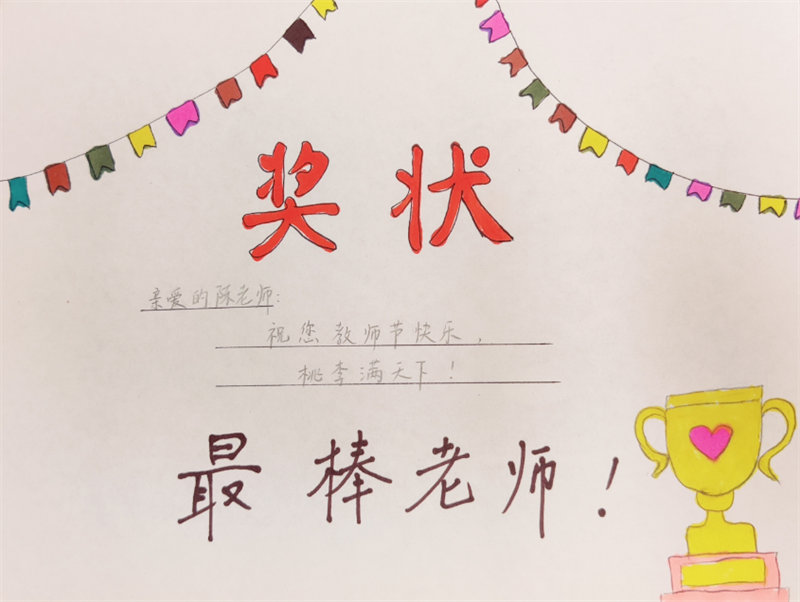 奖状
亲爱的陈老师:
祝您教师节快乐,
桃李满天下!
最棒老师!